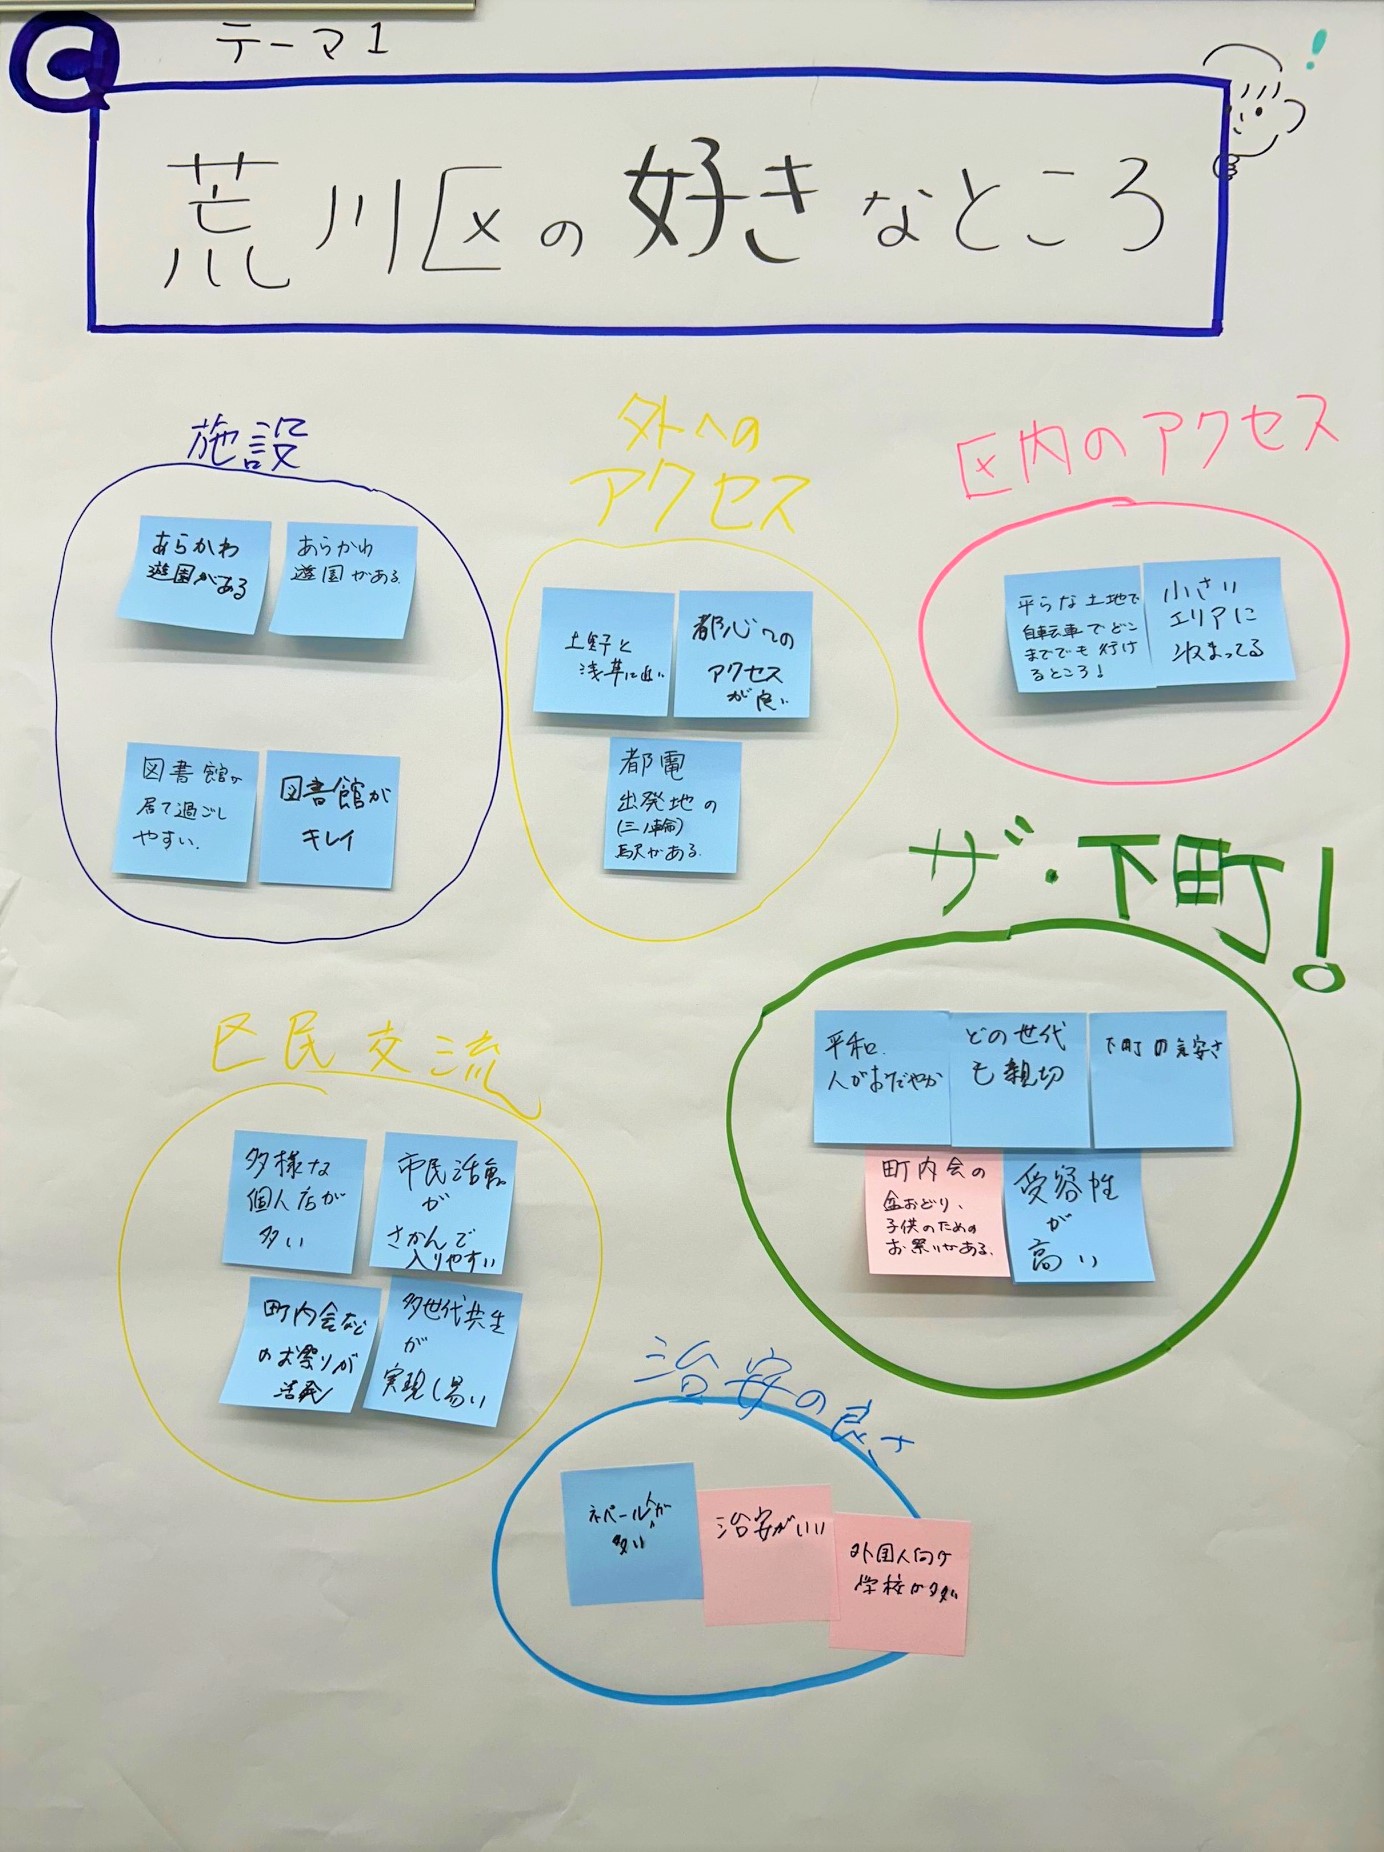 C
テーマ1
荒川区の好きなところ
!
施設
あらかわ
遊園がある
あらかわ
遊園がある.
図書館が
居て過ごし
やすい.
図書館が
キレイ
外への
アクセス
上野と
浅草に近い
都心への
アクセス
が良い
都電
出発地の
(三ノ輪)
駅がある.
区内のアクセス
平らな土地で
自転車でどこ
まででも行け
るところ!
小さい
エリアに
収まってる
ザ・下町!
平和.
人がおだやか
どの世代
も親切
下町の気安さ
町内会の
盆おどり、
子供のための
お祭りがある.
受容性
が
高い
区民交流
多様な
個人店が
多い
市民活動
が
さかんで
入りやすい
町内会など
のお祭りが
活発
多世代共生
が
実現し易い
治安の良さ
ネパール人が
多い
治安がいい
外国人向け
学校が多い